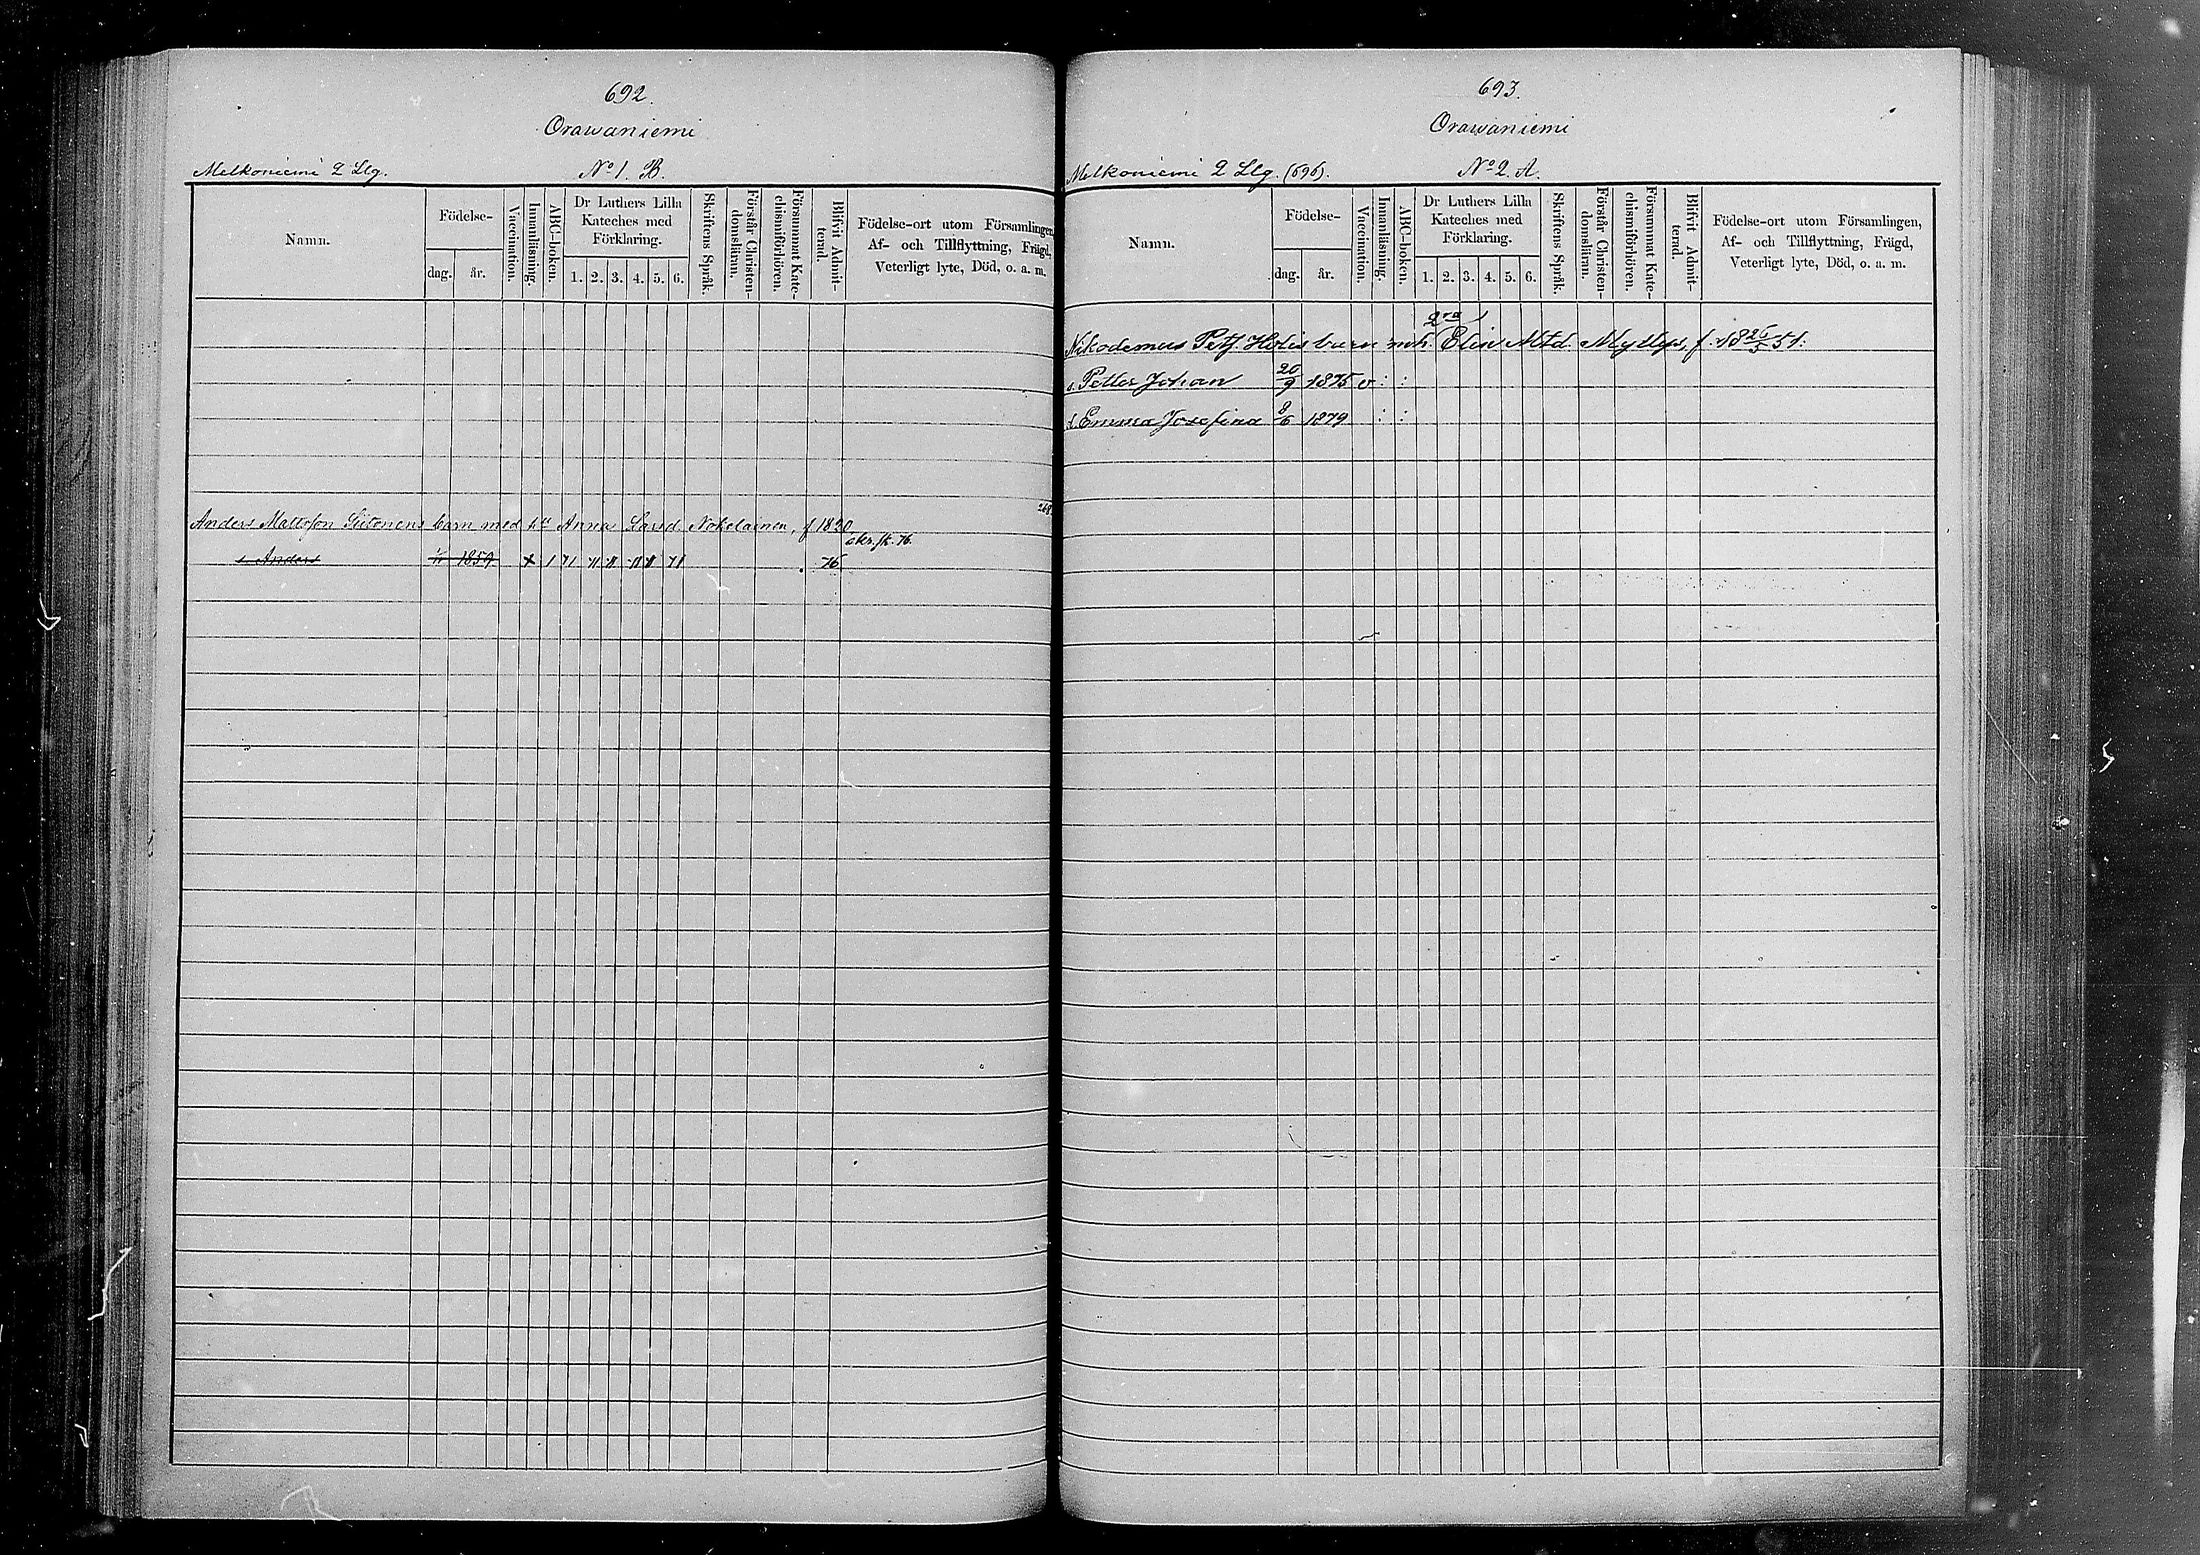 692.
Orawaniemi
Melkoniemi 2 Llg. No 1. B.
Namn.
Födelse-
dag. år.
Vaccination.
Innanläsning.
ABC-boken.
Dr Luthers Lilla
Kateches med
Förklaring.
1. 2. 3. 4. 5. 6.
Skriftens Språk.
Förstår Christen-
domsläran.
Försummat Kate-
chismiförhören.
Blifvit Admit-
terad.
Födelse-ort utom Församlingen,
Af- och Tillflyttning, Frägd,
Veterligt lyte, Död, o. a. m.
Anders Mattsson barn med Anna Larsd. Nokelainen, f 1830
76.
s. Anders 1859 x 76
693.
Orawaniemi
Melkoniemi 2 Llg. (696). No 2. A.
Namn.
Födelse-
dag. år.
Vaccination.
Innanläsning.
ABC-boken.
Dr Luthers Lilla
Kateches med
Förklaring.
1. 2. 3. 4. 5. 6.
Skriftens Språk.
Förstår Christen-
domsläran.
Försummat Kate-
chismiförhören.
Blifvit Admit-
terad.
Födelse-ort utom Församlingen,
Af- och Tillflyttning, Frägd,
Veterligt lyte, Död, o. a. m.
2ra
Nikodemus Petf. barn m h. Elin Mtd. Myllys, f. 18 26/5 51.
s. Petter Johan 20/9 1875 v : :
d. Emma Josefina 8/6 1879 : :